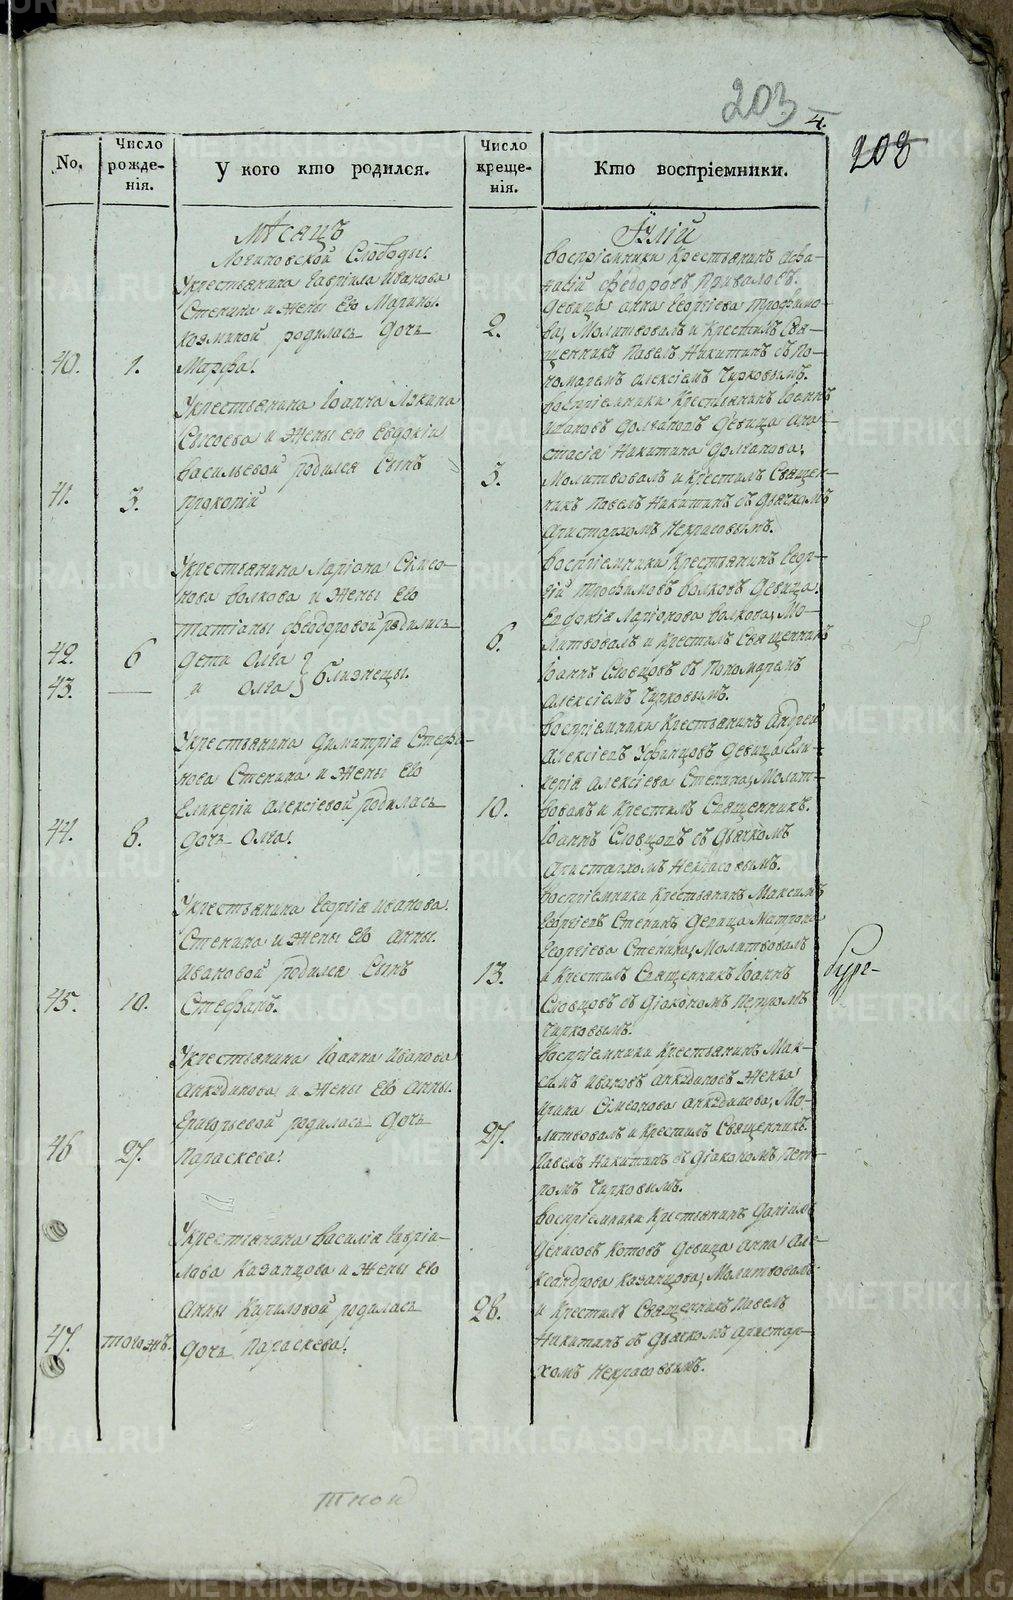 203
4.
208
No.
Число рожденія.
У кого кто родился.
Число крещенія.
Кто воспріемники.
Мѣсяцъ
Іулій
Логиновской Слободы
40.
1.
Укрестьянина Гаврила Иванова
Степина и жены Его Марины
Козминой родилась дочь
Марфа
2.
воспріемники Крестьянинъ Афа-
насій Федоровъ Приваловъ.
Девица Анна Георгіева Трофимо-
ва, Молитвовалъ и Крестилъ Свя-
щенникъ Павелъ Никитинъ съ По-
номаремъ Алексіемъ Чирковымъ.
41.
3.
Укрестьянина Іоанна
Сысоева и жены его Евдокіи
васильевой родился Сынъ
Прокопій
3.
воспріемники Крестьянинъ Іоаннъ
Девица Ана-
стасія Никитина
Молитвовалъ и Крестилъ Священ-
никъ Павелъ Никитинъ съ Дьячкомъ
Аристархомъ Некрасовымъ.
42.
43.
6
Укрестьянина Ларіона Симео-
нова волкова и жены Его
Татіаны Феодоровой родились
дети Олга
и Олга
близнецы.
6.
воспріемники Крестьянинъ Геор-
гій Трофимовъ волковъ Девица
Евдокія Ларіонова волкова, Мо-
литвовалъ и Крестилъ Священникъ
Іоаннъ Словцовъ съ Пономаремъ
Алексіемъ Чирковымъ.
44.
8.
Укрестьянина Димитрія Стефа-
нова Степина и жены Его
Гликеріи Алексіевой родилась
дочь Олга
10.
воспріемники Крестьянинъ Андрей
Алексіевъ Уфинцовъ Девица Гли-
керія Алексіева Степина, Молит-
вовалъ и Крестилъ Священникъ
Іоаннъ Словцовъ съ Дьячкомъ
Аристархомъ Некрасовымъ.
45.
10.
Укрестьянина Георгія Иванова
Степина и жены Его Анны
Ивановой родился Сынъ
Стефанъ.
13.
воспріемники Крестьянинъ Максимъ
Георгіевъ Степинъ Девица Матрона
Георгіева Степина, Молитвовалъ
и Крестилъ Священникъ Іоаннъ
Словцовъ съ Діакономъ Петромъ
Чирковымъ.
46
27.
Укрестьянина Іоанна Иванова
Анкудинова и жены Его Анны
Григорьевой родилась дочь
Параскева
27.
воспріемники Крестьянинъ Мак-
симъ Ивановъ Анкудиновъ Женка
Ирина Сімеонова Анкудинова, Мо-
литвовалъ и Крестилъ Священникъ
Павелъ Никитинъ съ Діакономъ Пет-
ромъ Чирковымъ.
47.
тогожъ.
Укрестьянина василія Гавріи-
лова Казанцова и жены Его
Анны Кариловой родилась
дочь Параскева
28.
воспріемники Крестьянинъ Даніилъ
Денисовъ Котовъ Девица Анна Але-
ксандрова Казанцова, Молитвовалъ
и Крестилъ Священникъ Павелъ
Никитинъ съ Дьячкомъ Аристар-
хомъ Некрасовымъ.
METRIKI.GASO-URAL.RU